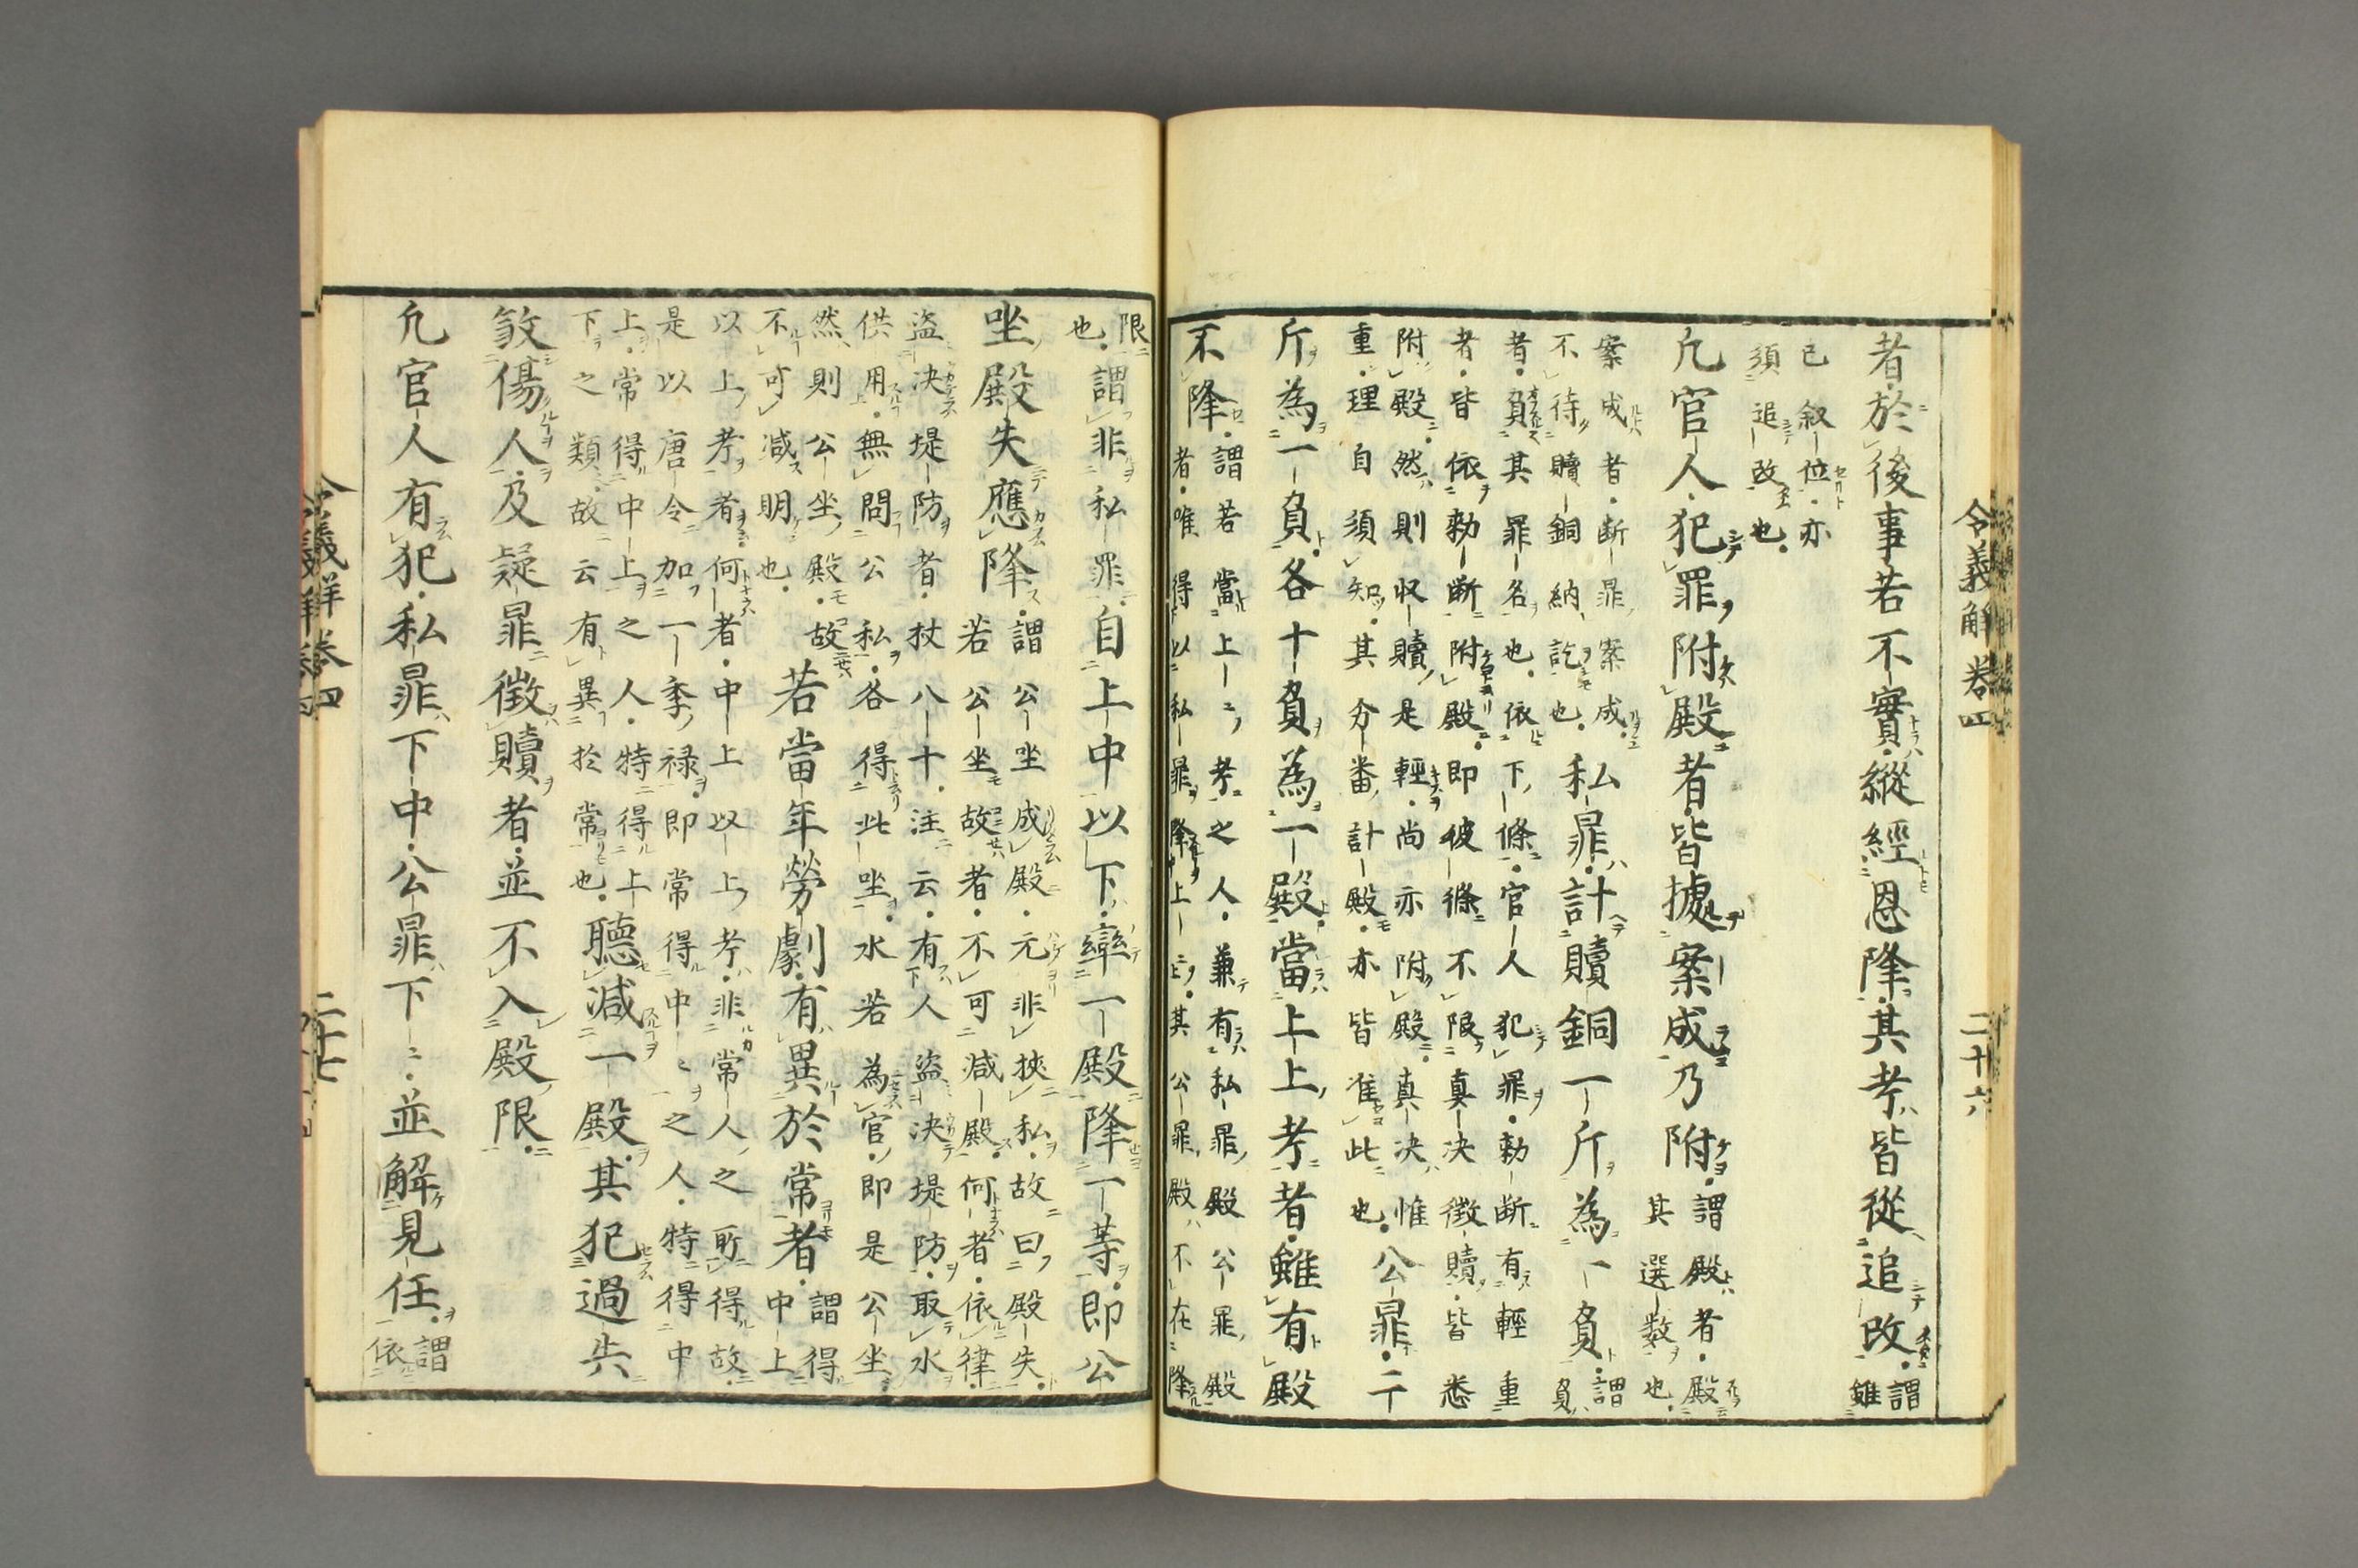 令義解卷四　二十六
者於後事若不實縱經恩降其考皆從追改謂雖
已叙位亦
須追改也
凡官人犯罪附殿者皆據案成乃附謂殿者殿
其選数也
案成者断罪案成
不待贖銅納訖也私罪計贖銅一斤為一負謂負
者負其罪名也依下條官人犯罪勅断有輕重
者皆依勅断附殿即彼條不限真决徴贖皆悉
附殿然則収贖是輕尚亦附殿真决惟
重理自須知其分番計殿亦皆准此也公罪二
斤為一負各十負為一殿當上上考者雖有殿
不降謂若當上〻考之人兼有私罪殿公罪殿
者唯得以私罪降上上其公罪殿不在降
限
也謂非私罪自上中以下率一殿降一等即公
坐殿失應降謂公坐成殿元非挾私故曰殿失
若公坐故者不可減殿何者依律
盗决堤防者杖八十注云有人盗决堤防取水
供用無問公私各得此坐水若為官即是公坐
然則公坐殿故
不可減明也若當年勞劇有異於常者謂得
中上
以上考者何者中上以上考非常人之所得故
是以唐令加一季禄即常得中〻之人特得中
上常得中上之人特得上
下之類故云有異於常也聽減一殿其犯過失
敓傷人及疑罪徴贖者並不入殿限
凡官人有犯私罪下中公罪下〻並解見任謂
依
令義解卷四　二十七